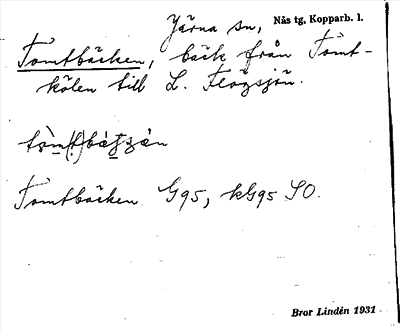 Järna sn, Nås tg, Kopparb. l.
Tomtbäcken, bäck från Tomt-
kölen till L. Flögsjön.
Tomtbäcken G95, kG95 SO.
Bror Lindén 1931